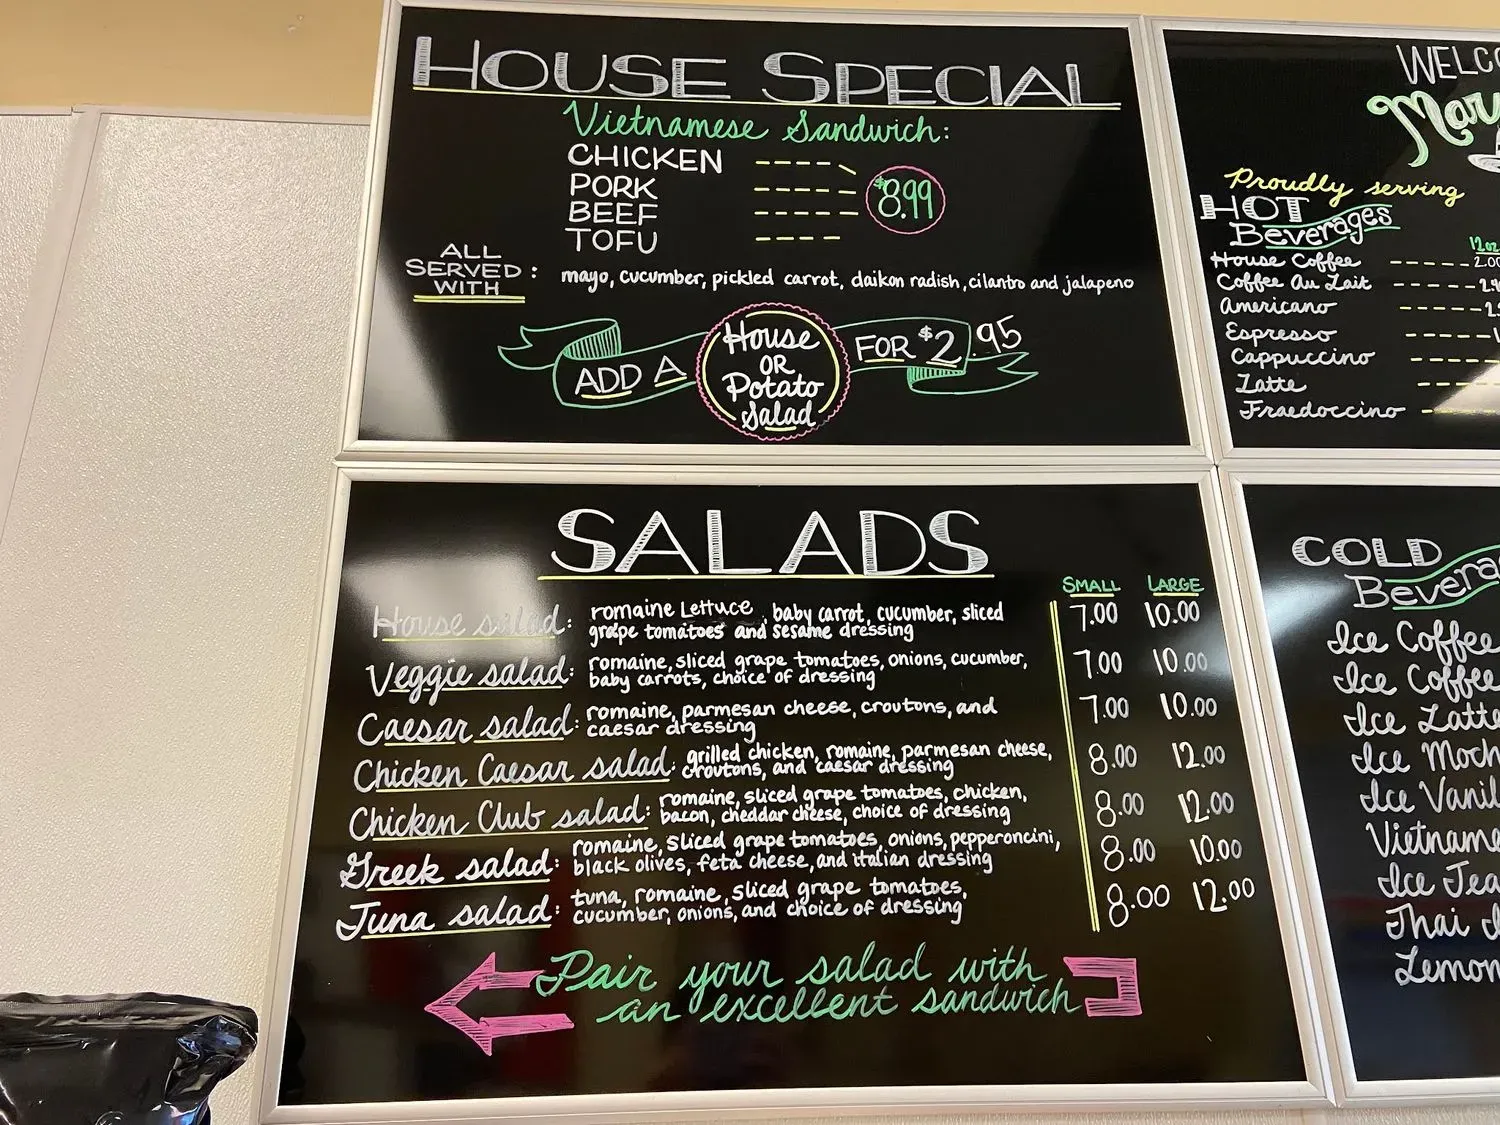 HOUSE SPECIAL
Vietnamese Sandwich:
CHICKEN ----
PORK ----- $8.99
BEEF -----
TOFU ----
ALL SERVED WITH : mayo, cucumber, pickled carrot, daikon radish, cilantro and jalapeno
ADD A House OR Potato Salad FOR $2.95
SALADS
SMALL LARGE
House salad: romaine Lettuce, baby carrot, cucumber, sliced 7.00 10.00
grape tomatoes and sesame dressing
Veggie salad: romaine, sliced grape tomatoes, onions, cucumber, 7.00 10.00
baby carrots, choice of dressing
Caesar salad: romaine, parmesan cheese, croutons, and 7.00 10.00
caesar dressing
Chicken Caesar salad: grilled chicken, romaine, parmesan cheese, 8.00 12.00
croutons, and caesar dressing
Chicken Club salad: romaine, sliced grape tomatoes, chicken, 8.00 12.00
bacon, cheddar cheese, choice of dressing
Greek salad: romaine, sliced grape tomatoes, onions, pepperoncini, 8.00 10.00
black olives, feta cheese, and italian dressing
Tuna salad: tuna, romaine, sliced grape tomatoes, 8.00 12.00
cucumber, onions, and choice of dressing
Pair your salad with
an excellent sandwich
WELCO
Mar
Proudly serving
HOT
Beverages
12oz
House Coffee ----- 2.00
Coffee Au Lait -----
Americano ----
Espresso ----
Cappuccino ----
Latte ----
Fraedoccino
COLD
Bevera
Ice Coffee
Ice Coffee
Ice Latte
Ice Moch
Ice Vanil
Vietname
Ice Tea
Thai I
Lemon